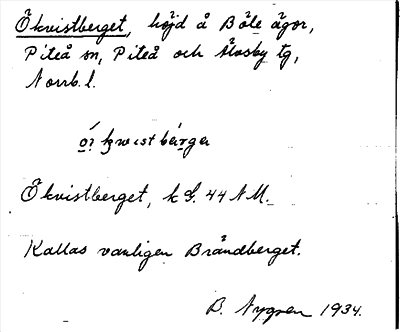 Ökvistberget, höjd å Böle ägor,
Piteå sn, Piteå och Älvsby tg,
Norrb. l.
Ökvistberget, k S. 44 NM.
Kallas vanligen Brändberget.
B. Nygren 1934.